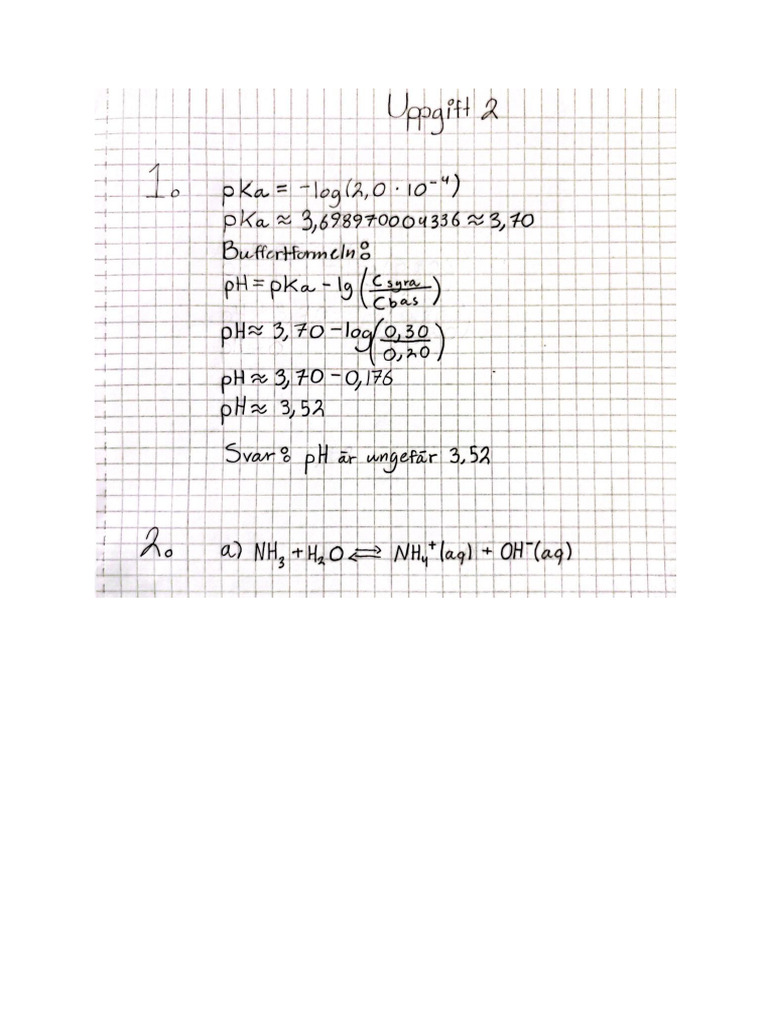 Uppgift 2
1. pKa = -log(2,0 · 10⁻⁴)
pKa ≈ 3,698970004336 ≈ 3,70
Buffertformeln:
pH = pKa - lg (Csyra / Cbas)
pH ≈ 3,70 - log (0,30 / 0,20)
pH ≈ 3,70 - 0,176
pH ≈ 3,52
Svar: pH är ungefär 3,52
2. a) NH₃ + H₂O ⇌ NH₄⁺(aq) + OH⁻(aq)